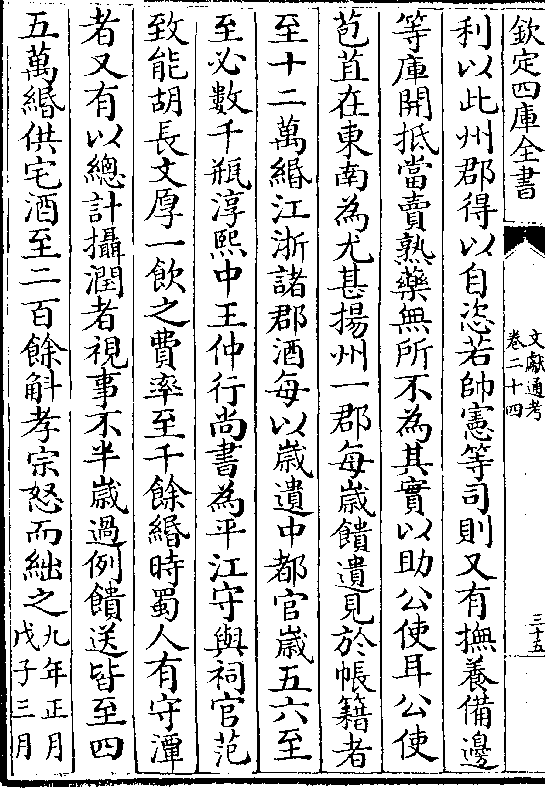 欽定四庫全書
文獻通考
卷二十四
三十五
利以此州郡得以自恣若帥憲等司則又有撫養備邊
等庫開抵當賣熟藥無所不為其實以助公使耳公使
苞苴在東南為尤甚揚州一郡每歲饋遺見於帳籍者
至十二萬緡江浙諸郡酒每以歲遺中都官歲五六至
至必數千瓶淳熙中王仲行尚書為平江守與祠官范
致能胡長文厚一飲之費率至千餘緡時蜀人有守潭
者又有以總計攝潤者視事不半歲過例饋送皆至四
五萬緡供宅酒至二百餘斛孝宗怒而絀之九年正月
戊子三月